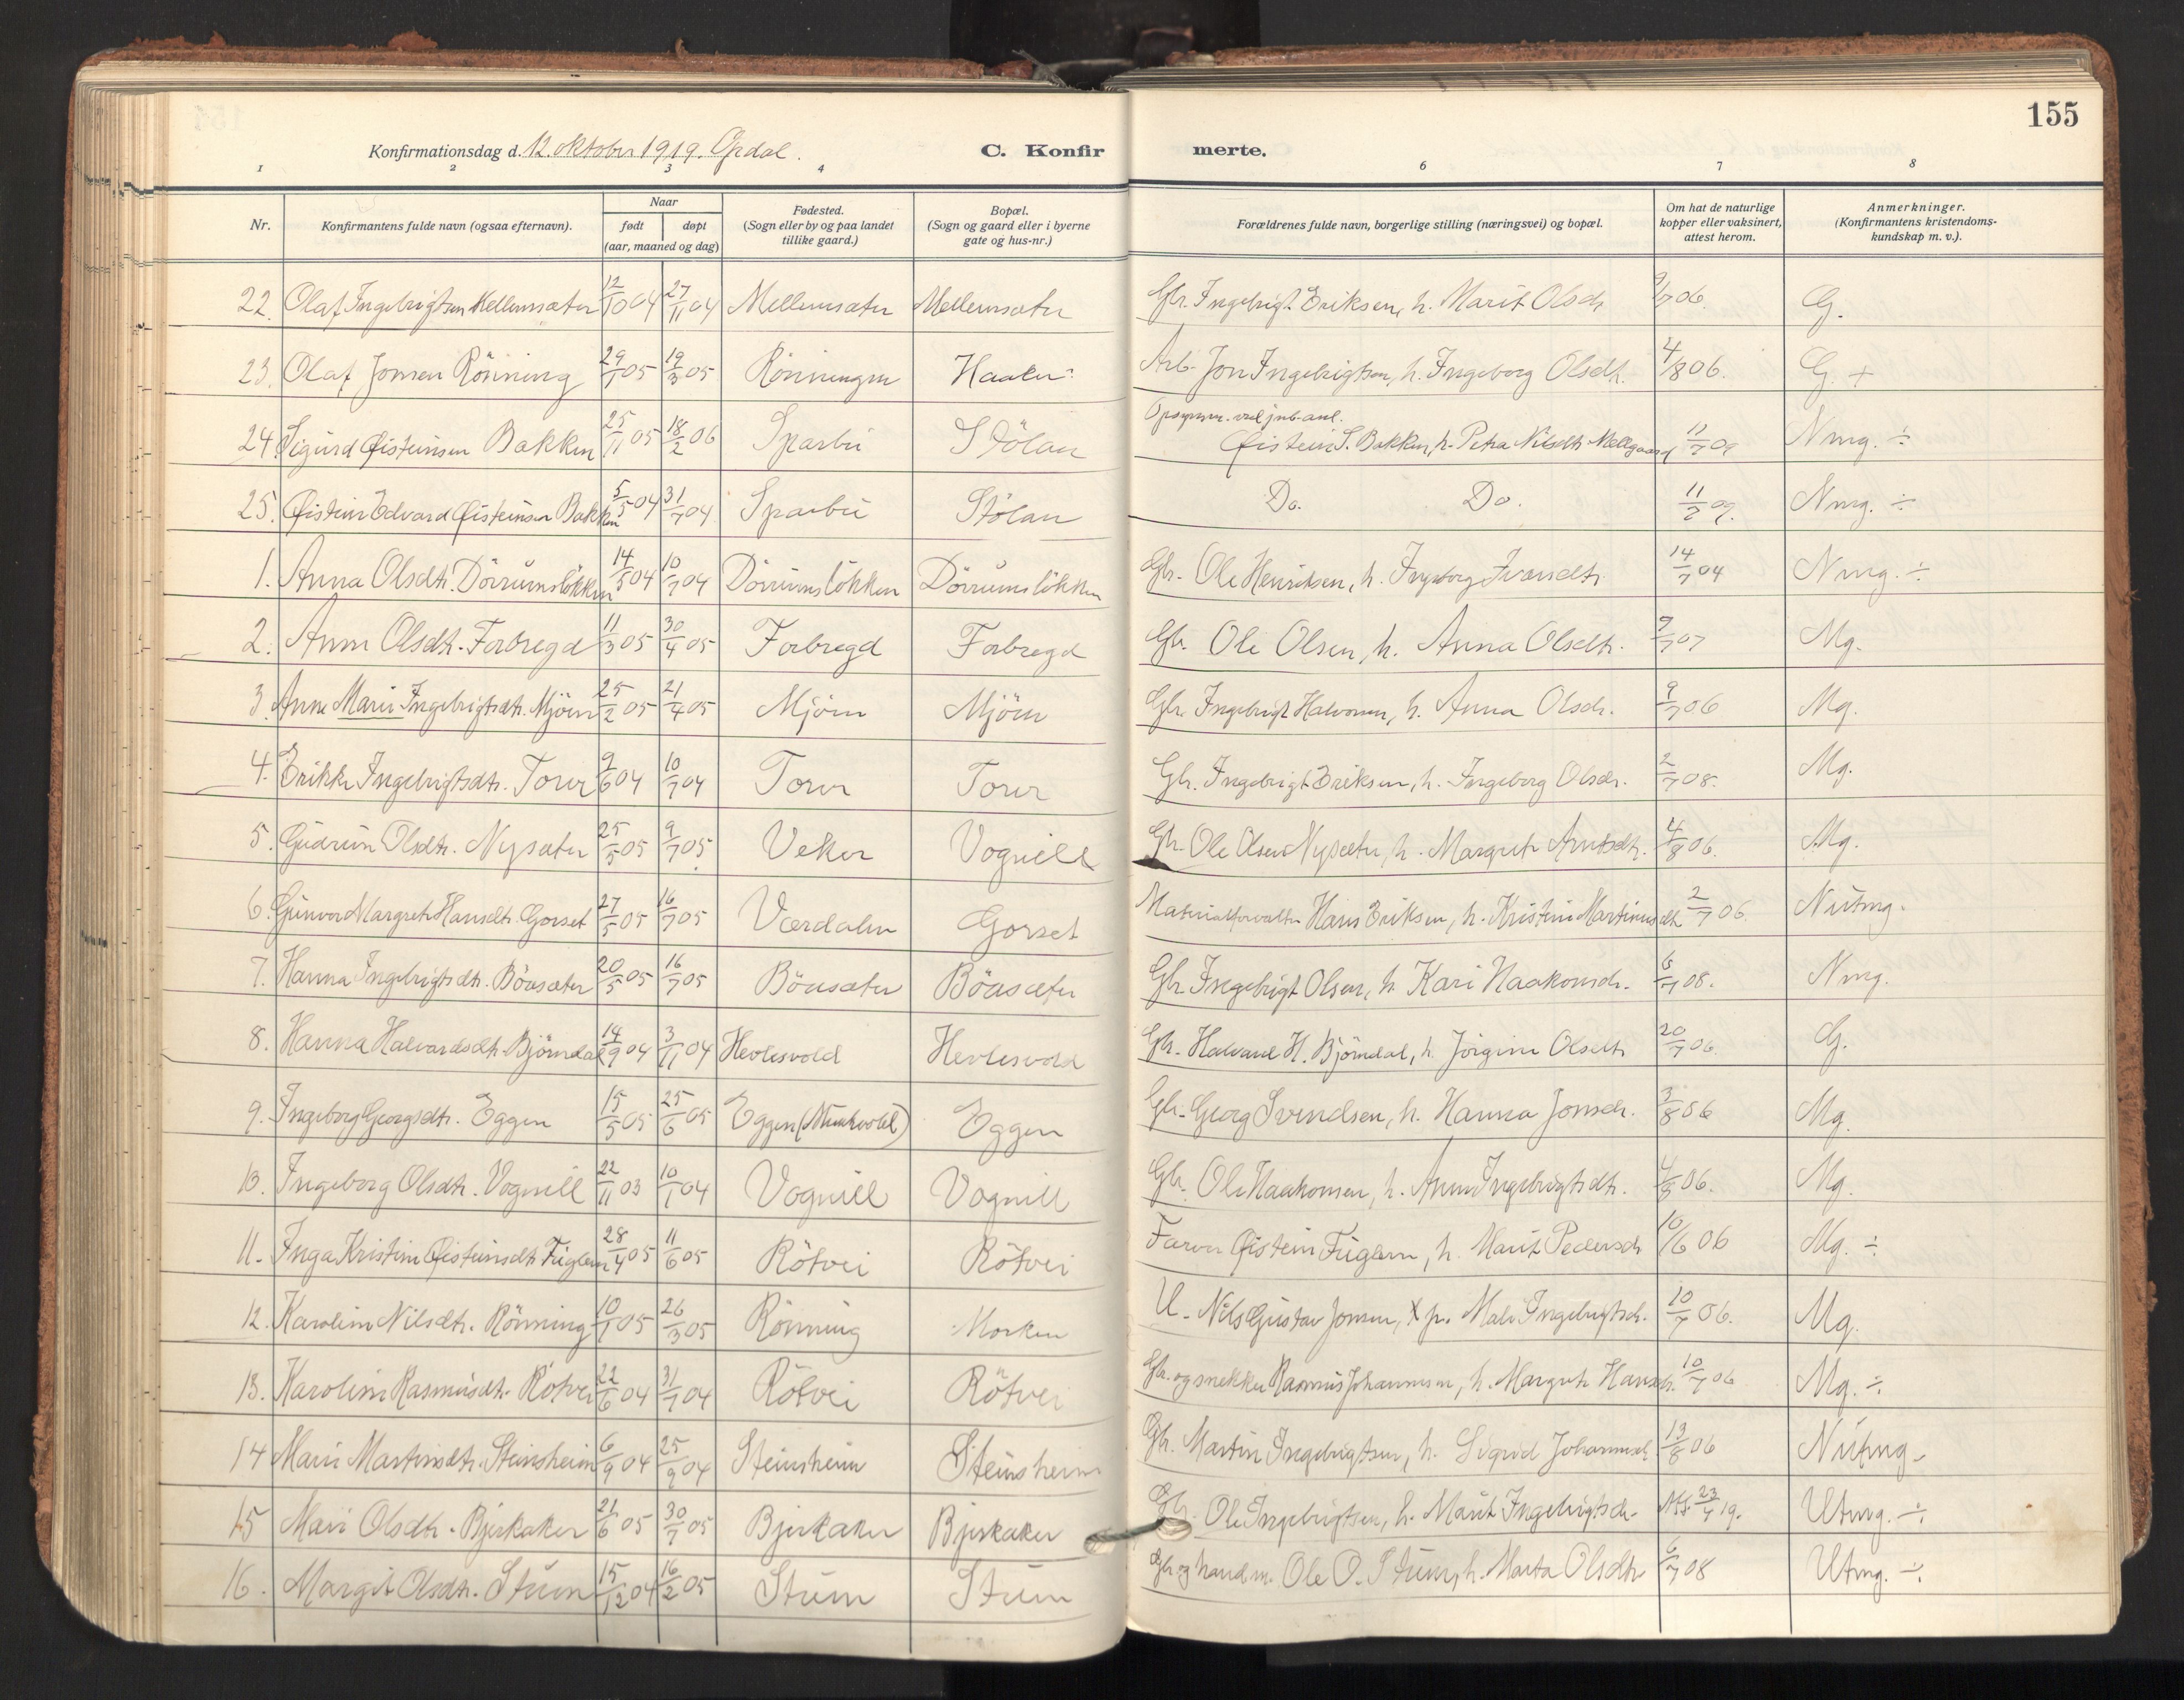 155
Konfirmationsdag d. 12. oktober 1919. Opdal.
C. Konfirmerte.
1 2 3 4 6 7 8
Nr. | Konfirmantens fulde navn (ogsaa efternavn). | Naar født | døpt (aar, maaned og dag) | Fødested. (Sogn eller by og paa landet tillike gaard.) | Bopæl. (Sogn og gaard eller i byerne gate og hus-nr.) | Forældrenes fulde navn, borgerlige stilling (næringsvei) og bopæl. | Om hat de naturlige kopper eller vaksinert, attest herom. | Anmerkninger. (Konfirmantens kristendomskundskap m. v.).
22. Olaf Ingebrigtsen Mellemsæter 12/10 04 27/11 04 Mellemsæter Mellemsæter Gbr. Ingebrigt Eriksen, h. Marit Olsdr 9/7 06. G.
23. Olaf Jonsen Rönning 29/1 05 19/3 05 Rönningen Haaker Arb. Jon Ingebrigtsen, h. Ingeborg Olsdtr. 4/8 06. G. +
24. Sigurd Øisteinsen Bakken 25/11 05 18/2 06 Sparbu Stölan Opsynsm. ved jnb.anl. Øistein S. Bakken, h. Petra Nilsdtr Mellgaard 11/7 09 Nmg. ÷
25. Øistein Edvard Øisteinsen Bakken 5/5 04 31/7 04 Sparbu Stölan Do. Do. 11/7 09. Nmg. ÷
1. Anna Olsdtr. Dörrumslökken 14/5 04 10/7 04 Dörrumslökken Dörrumslökken Gbr. Ole Henriksen, h. Ingeborg Ivarsdtr 14/7 04 Nmg. ÷
2. Anne Olsdtr. Forbregd 11/3 05 30/4 05 Forbregd Forbregd Gbr. Ole Olsen, h. Anna Olsdtr. 9/7 07 Mg.
3. Anne Marie Ingebrigtsdtr. Mjöen 25/2 05 21/4 05 Mjöen Mjöen Gbr. Ingebrigt Halvorsen, h. Anna Olsdr. 9/7 06 Mg.
4. Erikke Ingebrigtsdtr. Torve 9/6 04 10/7 04 Torve Torve Gbr. Ingebrigt Eriksen, h. Ingeborg Olsdr. 2/7 08. Mg.
5. Gudrun Olsdtr. Nysæter 25/5 05 9/7 05. Veker Vognill Gbr. Ole Olsen Nysæter, h. Margrete Arntsdtr. 4/8 06. Mg.
6. Gunvor Margrete Hansdtr. Gorset 27/5 05 16/7 05 Værdalen Gorset Materialforvalter Hans Eriksen, h. Kristine Martinusdtr 2/7 06. Nutmg.
7. Hanna Ingebrigtsdtr. Böasæter 20/5 05 16/7 05 Böasæter Böasæter Gbr. Ingebrigt Olsen, h. Kari Haakonsdr. 6/7 08. Nmg.
8. Hanna Halvardsdtr. Björndal 14/9 04 3/11 04 Hevlesvold Hevlesvold Gbr. Halvard H. Björndal, h. Jörgine Olsdtr 20/7 06. G.
9. Ingeborg Georgsdtr. Eggen 15/5 05 25/6 05 Eggen (Munkvold) Eggen Gbr. Georg Svendsen, h. Hanna Jonsdr. 3/8 06 Mg.
10. Ingeborg Olsdtr. Vognill 22/11 03 10/1 04 Vognill Vognill Gbr. Ole Haakonsen, h. Anne Ingebrigtsdtr. 4/8 06. Mg.
11. Inga Kristine Øisteinsdtr Fuglem 28/4 05 11/6 05 Rötvei Rötvei Farver Øistein Fuglem, h. Marit Pedersdr 10/6 06 Mg. ÷
12. Karoline Nilsdtr. Rönning 10/1 05 26/3 05 Rönning Morken U. Nils Gustav Jonsen, p. Male Ingebrigtsdr. 10/7 06. Mg.
13. Karoline Rasmusdtr. Rötvei 22/6 04 31/7 04 Rötvei Rötvei Gbr. og snekker Rasmus Johannesen, h. Margrete Hansdr. 10/7 06 Mg. ÷
14 Marie Martinsdtr. Steinsheim 6/9 04 25/9 04 Steinsheim Steinsheim Gbr. Martin Ingebrigtsen, h. Sigrid Johannesdr 13/8 06 Nutmg.
15 Mari Olsdtr. Bjerkaker 21/6 05 30/7 05 Bjerkaker Bjerkaker Gbr. Ole Ingebrigtsen, h. Marit Ingebrigtsdr. 23/4 19. Utmg. ÷
16. Margit Olsdtr. Stuen 15/12 04 16/2 05 Stuen Stuen Gbr og handm. Ole O. Stuen, h. Marta Olsdtr. 6/7 08 Utmg. ÷